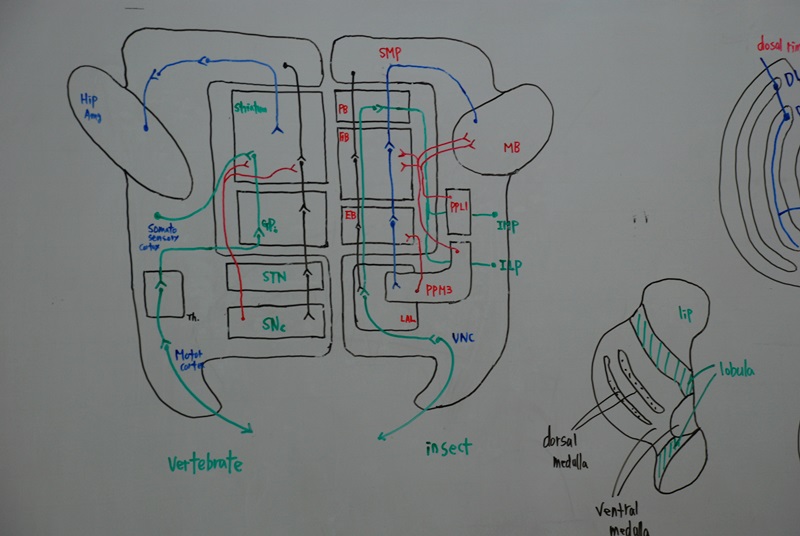 Hip
Amg
Striatum
Somato
sensory
cortex
GPi
STN
SNc
Th.
Motor
cortex
vertebrate
SMP
PB
FB
EB
MB
PPL1
IMP
ILP
PPM3
LAL
VNC
insect
dosal rim
lip
lobula
dorsal
medalla
ventral
medalla